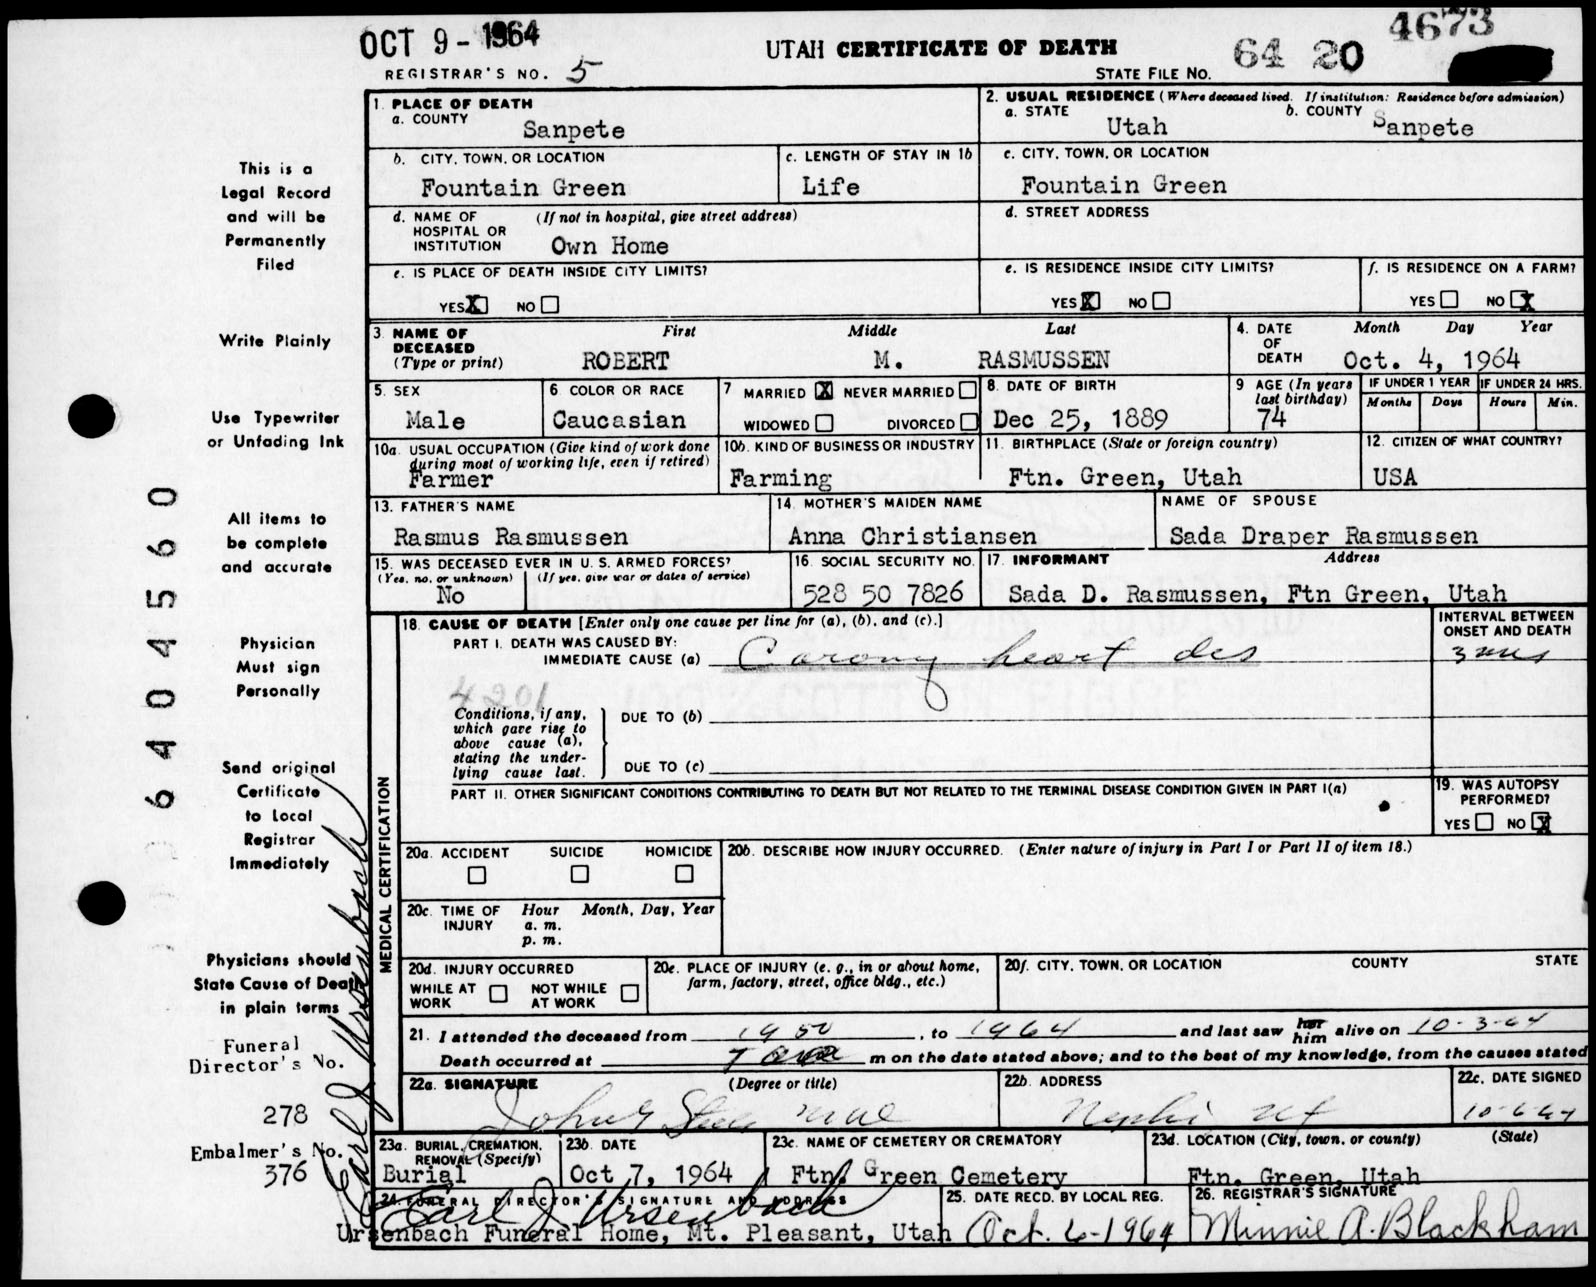 OCT 9 - 1964
REGISTRAR'S NO. 5
UTAH CERTIFICATE OF DEATH
STATE FILE NO. 64 20
4673
This is a
Legal Record
and will be
Permanently
Filed
Write Plainly
Use Typewriter
or Unfading Ink
All items to
be complete
and accurate
Physician
Must sign
Personally
Send original
Certificate
to Local
Registrar
Immediately
Physicians should
State Cause of Death
in plain terms
Funeral
Director's No.
278
Embalmer's No.
376
640404560
Earl J Ursenbach
1. PLACE OF DEATH
a. COUNTY
Sanpete
2. USUAL RESIDENCE (Where deceased lived. If institution: Residence before admission)
a. STATE Utah b. COUNTY Sanpete
b. CITY, TOWN, OR LOCATION
Fountain Green
c. LENGTH OF STAY IN 1b
Life
c. CITY, TOWN, OR LOCATION
Fountain Green
d. NAME OF HOSPITAL OR INSTITUTION (If not in hospital, give street address)
Own Home
d. STREET ADDRESS
e. IS PLACE OF DEATH INSIDE CITY LIMITS?
YES X NO
e. IS RESIDENCE INSIDE CITY LIMITS?
YES X NO
f. IS RESIDENCE ON A FARM?
YES NO X
3. NAME OF DECEASED (Type or print)
First Middle Last
ROBERT M. RASMUSSEN
4. DATE OF DEATH
Month Day Year
Oct. 4, 1964
5. SEX
Male
6. COLOR OR RACE
Caucasian
7 MARRIED X NEVER MARRIED
WIDOWED DIVORCED
8. DATE OF BIRTH
Dec 25, 1889
9 AGE (In years last birthday)
74
IF UNDER 1 YEAR
Months Days
IF UNDER 24 HRS.
Hours Min.
10a. USUAL OCCUPATION (Give kind of work done during most of working life, even if retired)
Farmer
10b. KIND OF BUSINESS OR INDUSTRY
Farming
11. BIRTHPLACE (State or foreign country)
Ftn. Green, Utah
12. CITIZEN OF WHAT COUNTRY?
USA
13. FATHER'S NAME
Rasmus Rasmussen
14. MOTHER'S MAIDEN NAME
Anna Christiansen
NAME OF SPOUSE
Sada Draper Rasmussen
15. WAS DECEASED EVER IN U. S. ARMED FORCES?
(Yes, no, or unknown) (If yes, give war or dates of service)
No
16. SOCIAL SECURITY NO.
528 50 7826
17. INFORMANT Address
Sada D. Rasmussen, Ftn Green, Utah
18. CAUSE OF DEATH [Enter only one cause per line for (a), (b), and (c).]
INTERVAL BETWEEN ONSET AND DEATH
PART I. DEATH WAS CAUSED BY:
IMMEDIATE CAUSE (a) Carony heart des
4201
Conditions, if any, which gave rise to above cause (a), stating the underlying cause last.
DUE TO (b)
DUE TO (c)
PART II. OTHER SIGNIFICANT CONDITIONS CONTRIBUTING TO DEATH BUT NOT RELATED TO THE TERMINAL DISEASE CONDITION GIVEN IN PART I(a)
19. WAS AUTOPSY PERFORMED?
YES NO X
MEDICAL CERTIFICATION
20a. ACCIDENT SUICIDE HOMICIDE
20b. DESCRIBE HOW INJURY OCCURRED. (Enter nature of injury in Part I or Part II of item 18.)
20c. TIME OF INJURY
Hour Month, Day, Year
a. m.
p. m.
20d. INJURY OCCURRED
WHILE AT WORK NOT WHILE AT WORK
20e. PLACE OF INJURY (e. g., in or about home, farm, factory, street, office bldg., etc.)
20f. CITY, TOWN, OR LOCATION COUNTY STATE
21. I attended the deceased from 1950, to 1964 and last saw her him alive on 10-3-64
Death occurred at 7 m on the date stated above; and to the best of my knowledge, from the causes stated
22a. SIGNATURE (Degree or title)
22b. ADDRESS
Nephi Ut
22c. DATE SIGNED
10-6-64
23a. BURIAL, CREMATION, REMOVAL (Specify)
Burial
23b. DATE
Oct 7, 1964
23c. NAME OF CEMETERY OR CREMATORY
Ftn. Green Cemetery
23d. LOCATION (City, town, or county) (State)
Ftn. Green, Utah
24. FUNERAL DIRECTOR'S SIGNATURE AND ADDRESS
Earl J Ursenbach
Ursenbach Funeral Home, Mt. Pleasant, Utah
25. DATE RECD. BY LOCAL REG.
Oct. 6-1964
26. REGISTRAR'S SIGNATURE
Minnie A. Blackham